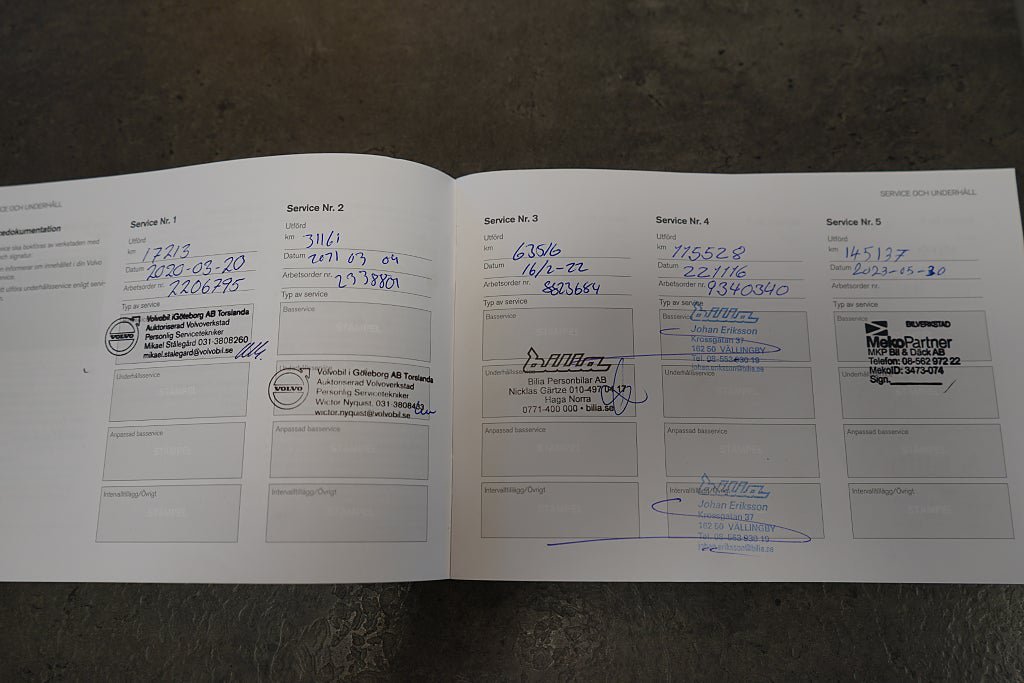 CE OCH UNDERHÅLL
cedokumentation
vice ska bokföras av verkstaden med
ch signatur.
en informerar om innehållet i din Volvo
ervice.
tt utföra underhållsservice enligt serv-
n.
Service Nr. 1
Utförd
km 17213
Datum 2020-03-20
Arbetsorder nr. 2206795
Typ av service
Volvobil i Göteborg AB Torslanda
Auktoriserad Volvoverkstad
Personlig Servicetekniker
Mikael Stålegård 031-3808260
mikael.stalegard@volvobil.se
VOLVO
Underhållsservice
STÄMPEL
Anpassad basservice
STÄMPEL
Intervalltillägg/Övrigt
STÄMPEL
Service Nr. 2
Utförd
km 31161
Datum 2021 03 04
Arbetsorder nr. 2938801
Typ av service
Basservice
STÄMPEL
Volvobil i Göteborg AB Torslanda
Auktoriserad Volvoverkstad
Personlig Servicetekniker
Wictor Nyquist. 031-3808453
wictor.nyquist@volvobil.se
VOLVO
Anpassad basservice
STÄMPEL
Intervalltillägg/Övrigt
STÄMPEL
SERVICE OCH UNDERHÅLL
Service Nr. 3
Utförd
km 63516
Datum 16/2-22
Arbetsorder nr. 8823684
Typ av service
Basservice
STÄMPEL
bilia
Bilia Personbilar AB
Nicklas Gärtze 010-497 04 17
Haga Norra
0771-400 000 • bilia.se
Anpassad basservice
STÄMPEL
Intervalltillägg/Övrigt
STÄMPEL
Service Nr. 4
Utförd
km 115528
Datum 221116
Arbetsorder nr. 9340340
Typ av service
Basservice
bilia
Johan Eriksson
Krossgatan 37
162 50 VÄLLINGBY
Tel. 08-553 930 19
johan.eriksson@bilia.se
Underhållsservice
STÄMPEL
Anpassad basservice
STÄMPEL
Intervalltillägg/Övrigt
bilia
Johan Eriksson
Krossgatan 37
162 50 VÄLLINGBY
Tel. 08-553 930 19
johan.eriksson@bilia.se
Service Nr. 5
Utförd
km 145137
Datum 2023-05-30
Arbetsorder nr.
Typ av service
Basservice
BILVERKSTAD
MekoPartner
MKP Bil & Däck AB
Telefon: 08-562 972 22
MekoID: 3473-074
Sign.
Anpassad basservice
STÄMPEL
Intervalltillägg/Övrigt
STÄMPEL